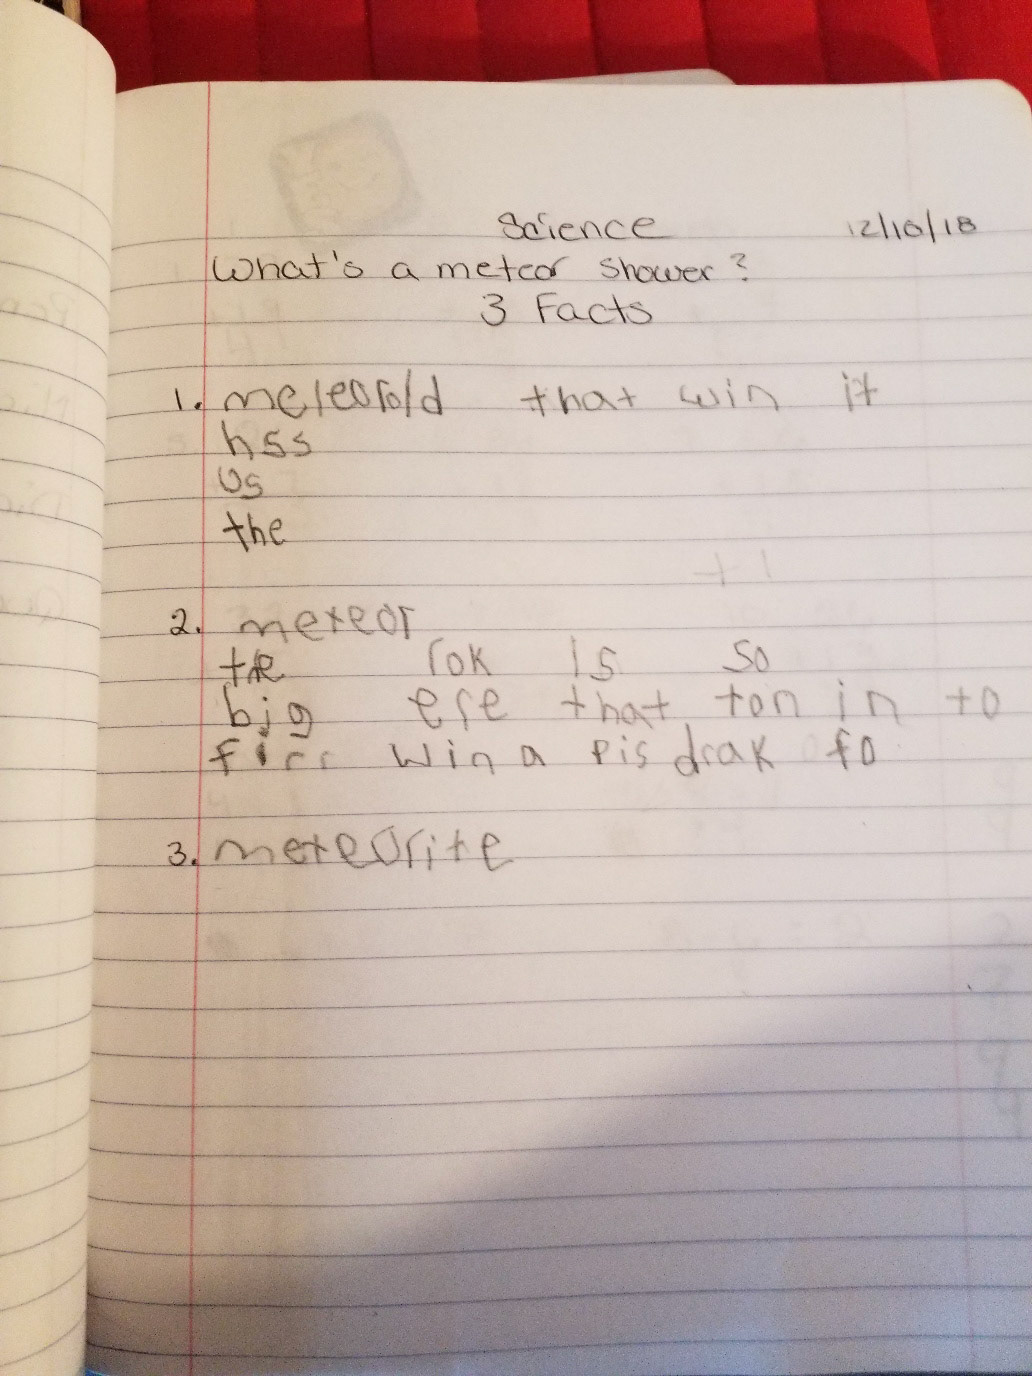 Science 12/10/18
What's a meteor shower?
3 Facts
1. meteorold that win it
hss
us
the
2. meteor
the rok is so
big ese that ton in to
firr win a pis drak fo
3. meteorite